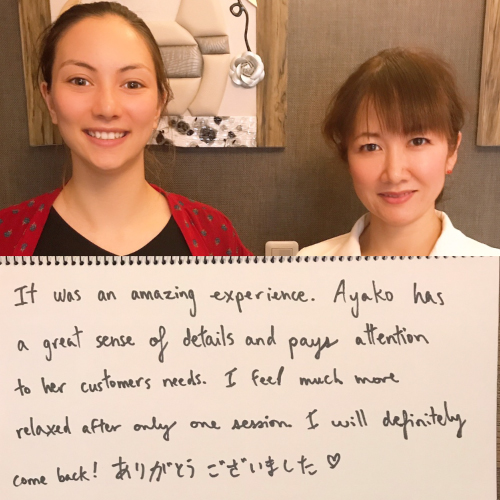 It was an amazing experience. Ayako has
a great sense of details and pays attention
to her customers needs. I feel much more
relaxed after only one session. I will definitely
come back! ありがとうございました♡